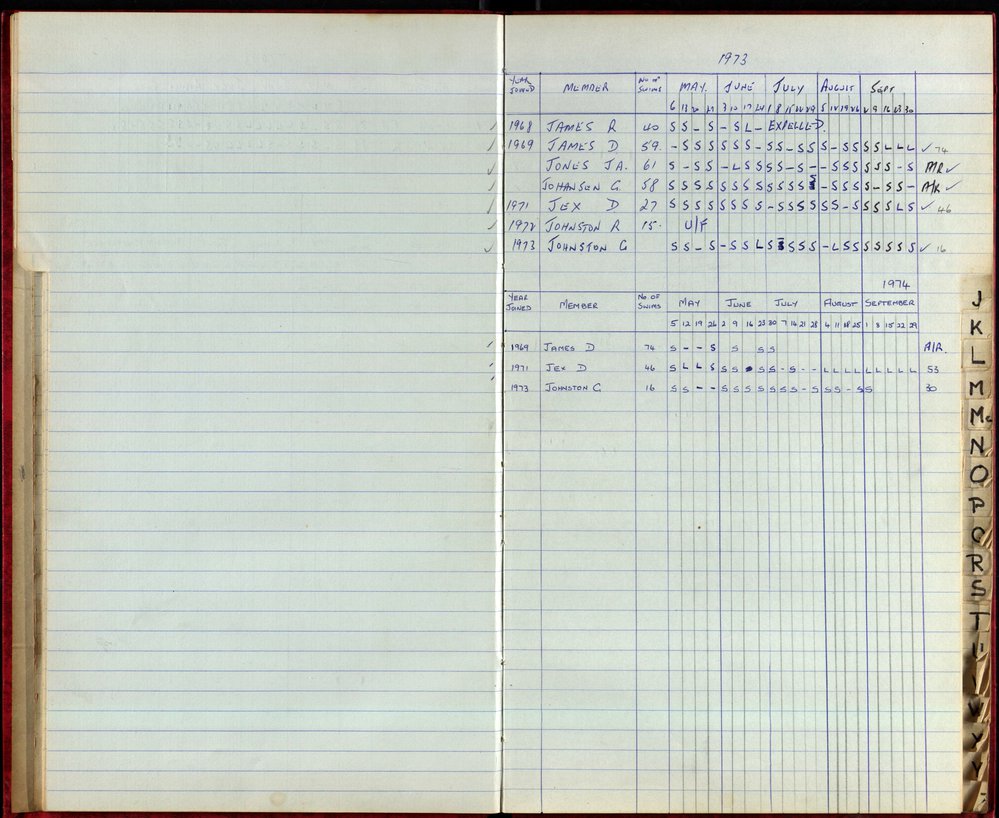 1973
YEAR JOINED MEMBER No OF SWIMS MAY. JUNE JULY AUGUST SEPT
6 13 20 27 3 10 17 24 1 8 15 22 29 5 12 19 26 2 9 16 23 30
/ 1968 JAMES R 40 S S - S - S L - EXPELLED.
/ 1969 JAMES D 59. - S S S S S S - S S - S S S - S S S S L L L ✓ 74
✓ JONES J.A. 61 S - S S - L S S S S - S - - S S S S S S - S A/R ✓
/ JOHANSEN G. 58 S S S S S S S S S S S S S - S S S S - S S - A/R ✓
/ 1971 JEX D 27 S S S S S S S S - S S S S S S - S S S S L S ✓ 46
/ 1972 JOHNSTON R 15. U/F
✓ 1973 JOHNSTON G S S - S - S S L S S S S S - L S S S S S S S ✓ 16
1974
YEAR JOINED MEMBER No. OF SWIMS MAY JUNE JULY AUGUST SEPTEMBER
5 12 19 26 2 9 16 23 30 7 14 21 28 4 11 18 25 1 8 15 22 29
1969 JAMES D 74 S - - S S S S A/R.
1971 JEX D 46 S L L S S S S S - S - - L L L L L L L L L 53
1973 JOHNSTON G 16 S S - - S S S S S S S - S S S - S S 30
J
K
L
M
Mc
N
O
P
Q
R
S
T
U
V
W
X
Y